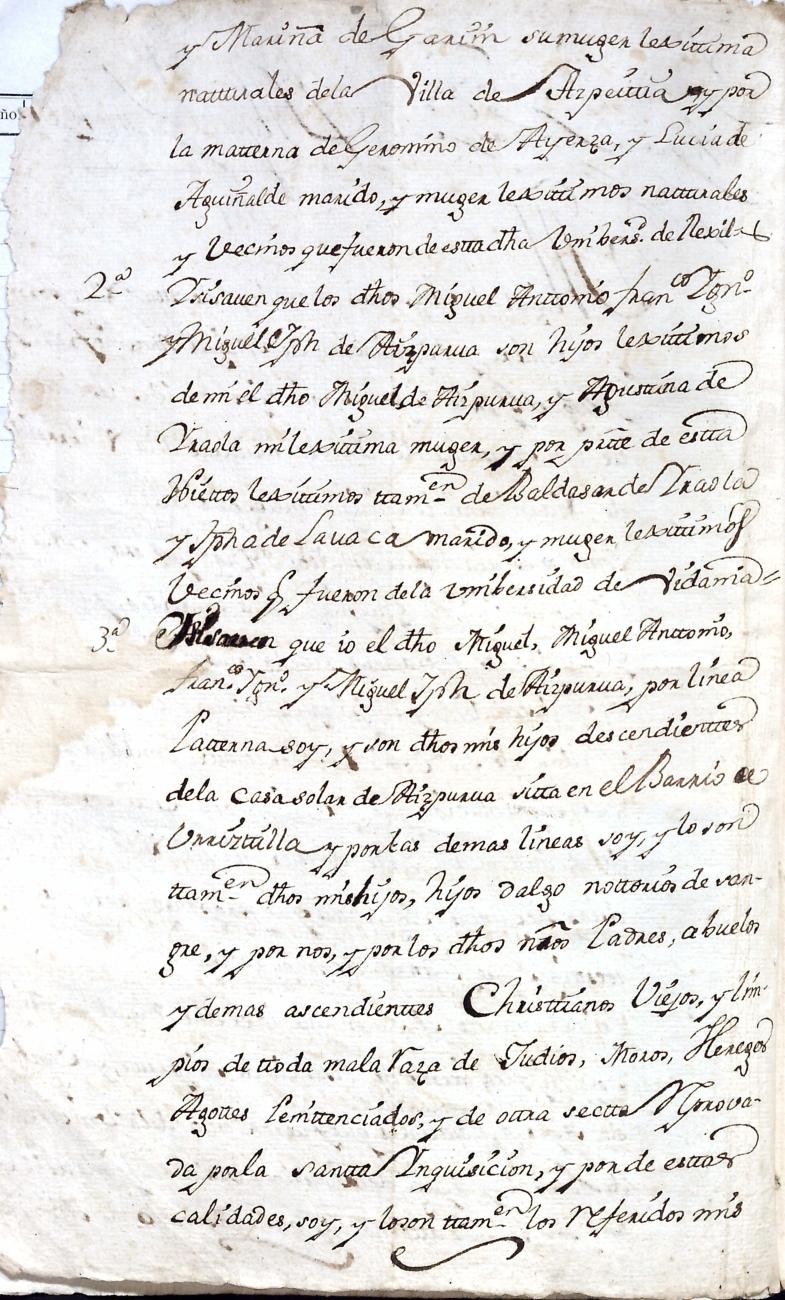 y Marina de Garin su muger lexitima
natturales dela Villa de Azpeittia y por
la matterna de Geronimo de Ayerza, y Lucia de
Aguiñalde marido, y muger lexittimos natturales
y Vecinos que fueron de estta dha Vnibersd. de Rexil
2ª Ysi saven que los dhos Miguel Anttonio franco Ygno.
y Miguel Jph de Aizpurua son hijos lexittimos
de mi el dho Miguel de Aizpurua, y Agustina de
Yraola mi lexittima muger, y por prtte de estta
Niettos lexittimos ttamen de Baldasar de Yraola
y Jpha de Lavaca marido, y muger lexittimos
Vecinos q fueron dela vnibersidad de Vidania
3ª Ysi saven que io el dho Miguel, Miguel Anttonio,
franco. Ygno. y Miguel Jph de Aizpurua, por linea
Patterna soy, y son dhos mis hijos descendienttes
dela casa solar de Aizpurua sitta en el Barrio de
Vrriztilla y por las demas lineas soy, y lo son
ttamen dhos mis hijos, hijos dalgo nottorios de san-
gre, y por nos, y por los dhos nros Padres, abuelos
y demas ascendienttes Christtianos Viejos, y lim-
pios de ttoda mala raza de Judios, Moros, Hereges
Agottes Penittenciados, y de ottra sectta Rprova-
da por la santta Ynquisicion, y por de esttas
calidades, soy, y lo son ttamen los Rferidos mis